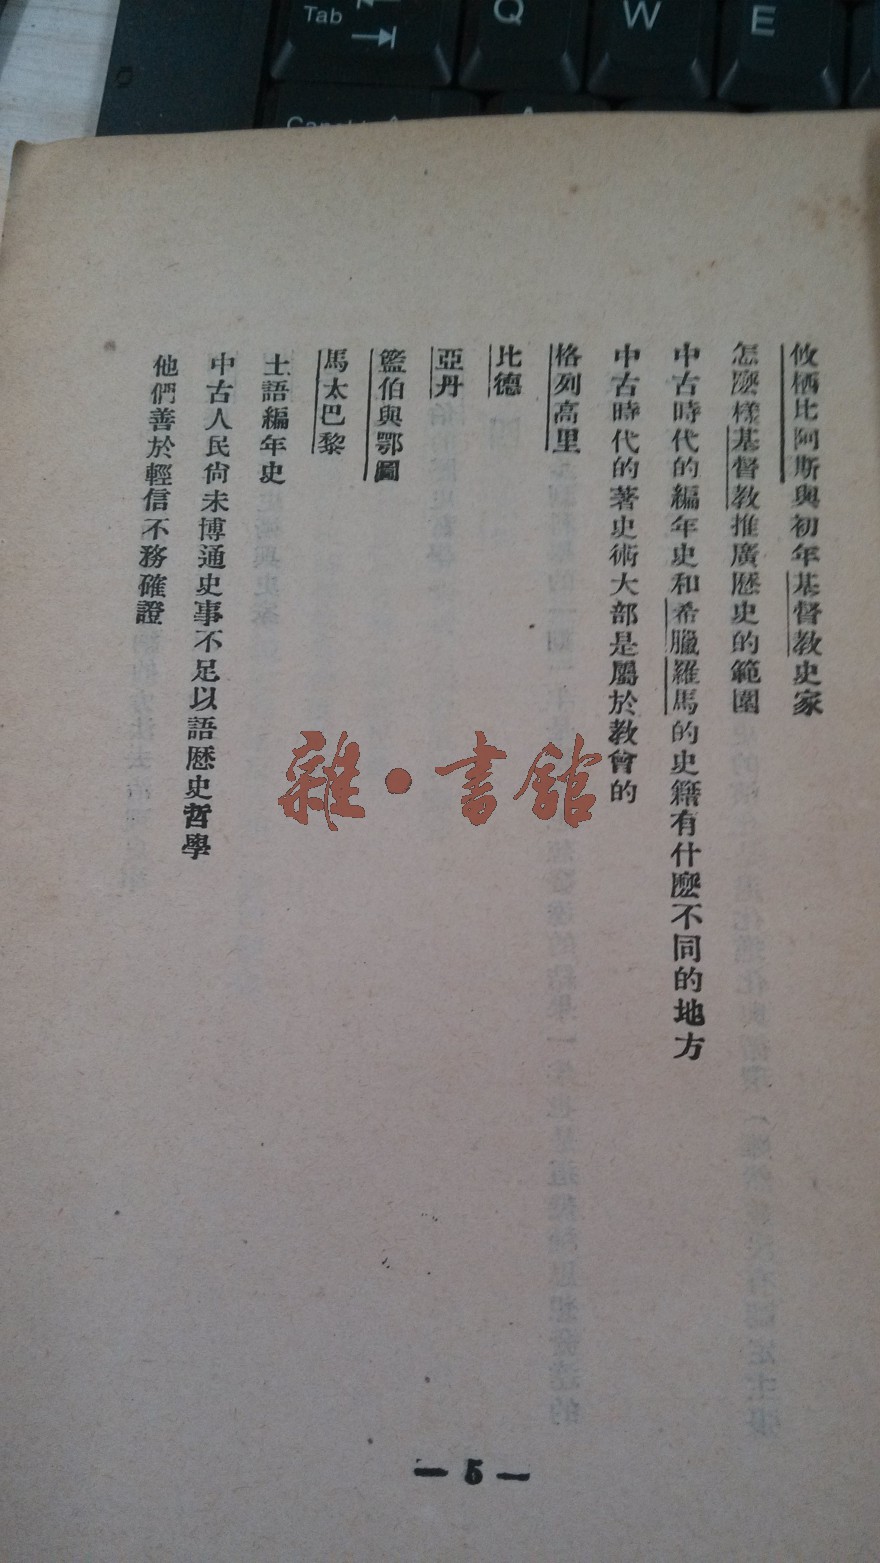 攸栖比阿斯與初年基督教史家
怎麼樣基督教推廣歷史的範圍
中古時代的編年史和希臘羅馬的史籍有什麼不同的地方
中古時代的著史術大部是屬於教會的
格列高里
比德
亞丹
籃伯與鄂圖
馬太巴黎
土語編年史
中古人民尚未博通史事不足以語歷史哲學
他們善於輕信不務確證
— 5 —
雜·書館
Tab
Q
W
E
A